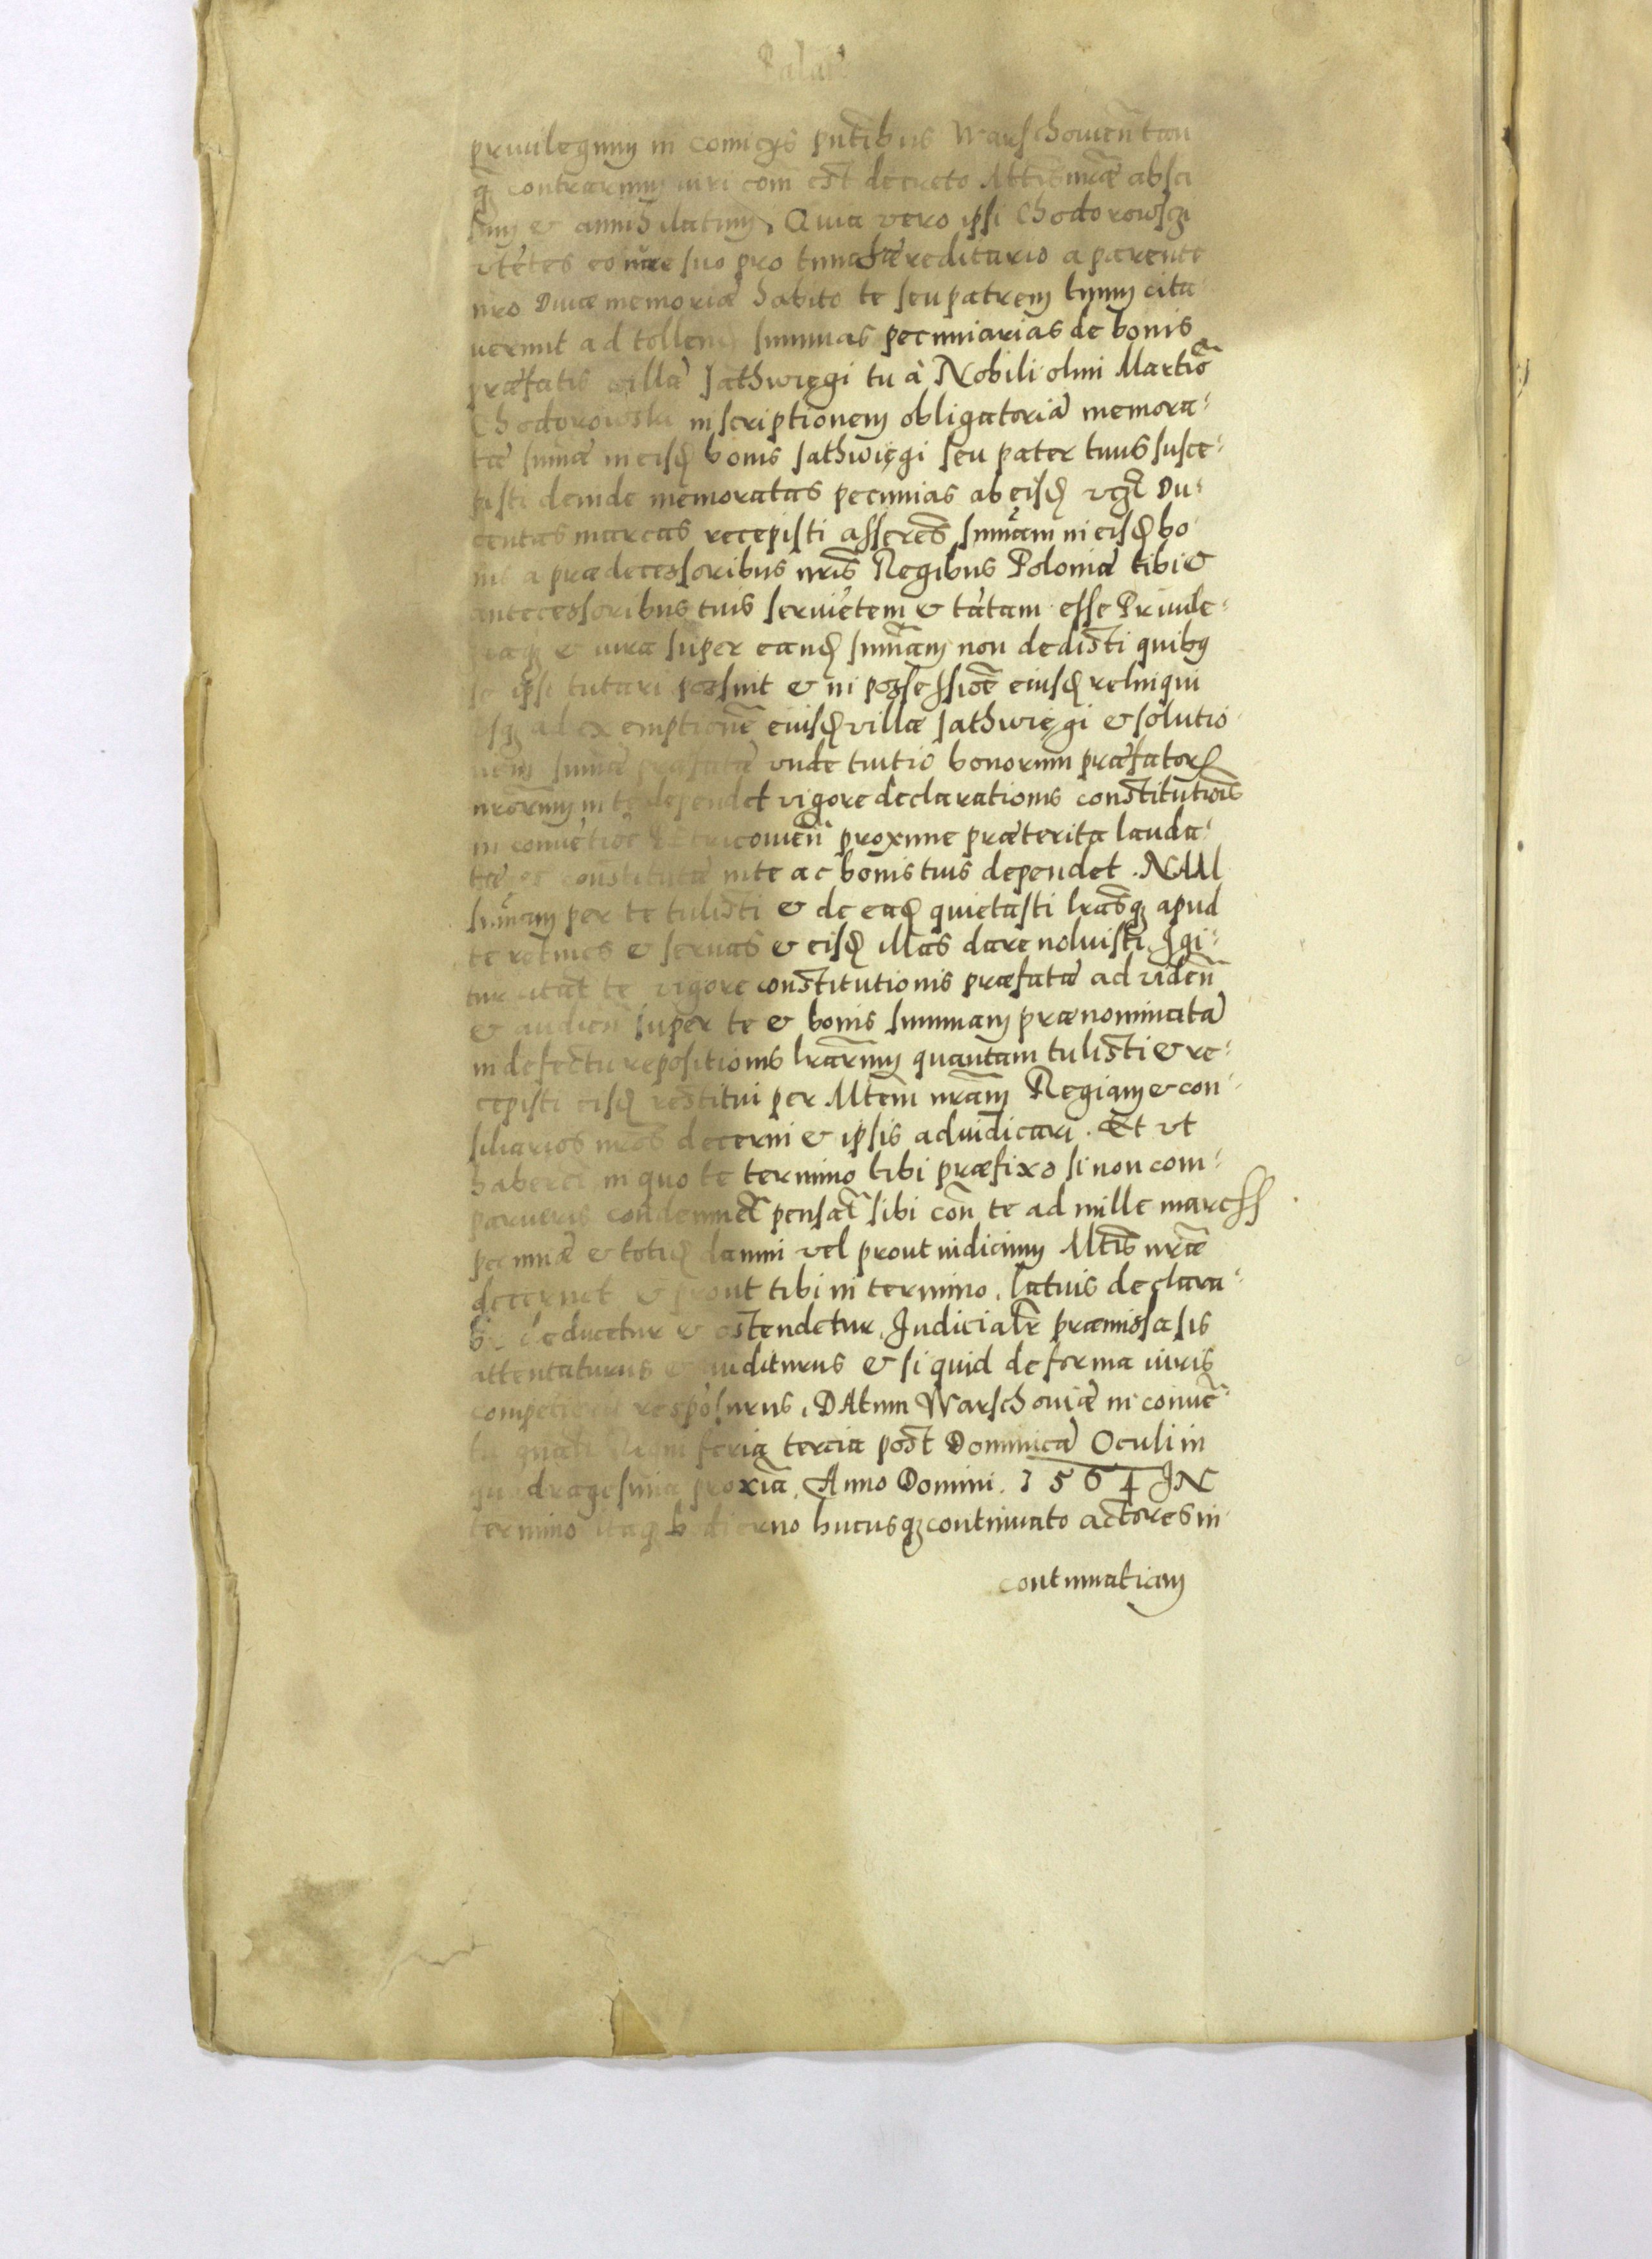 Palati
privilegium in comicys pñtibus Warschovieñ tan
q̃ȝ contrarium iuri com̃ est decreto Mttis nr̃æ absci
sum & annihilatum, Quia vero ipsi Chodorowsczi
vtẽtes eo iure suo pro tunc hæreditario a parente
nr̃o Divæ memoriæ habito te seu patrem tuum cita
verunt ad tollen summas pecuniarias de bonis
præfatis villæ Jathwięgi tu à Nobili olim Martino
Chodorowski inscriptionem obligatoriã memora-
tæ sum̃æ in eisd bonis Jathwięgi seu pater tuus susce-
pisti deinde memoratas pecunias ab eisd vĝt Du-
centas marcas recepisti asseres sum̃am in eisd bo
nis a prædecessoribus nr̃is Regibus Poloniæ tibi &
antecessoribus tuis serviẽtem & tãtam esse Privile-
giaq̃ȝ & iura super eand sum̃am non dedisti quibus
se ipsi tutari possint & in possessiõe eiusd relinqui
vsqȝ ad exemptionẽ eiusd villæ Jathwięgi & solutio
nem sum̃æ præfatæ vnde tuitio bonorum præfator
nr̃orum in te dependet vigore declarationis constitutiõis
in conventiõe Petricovieñ proxime præterita lauda-
tæ et constitutæ in te ac bonis tuis dependet. NAM
sum̃am per te tulisti & de ead quietasti lr̃asqȝ apud
te retines & servas & eisd illas dare noluisti, Igi-
tur citat te vigore constitutionis præfatæ ad videñ
& audieñ super te & bonis summam prænominatã
in defectu repositionis lr̃arum quantam tulisti & re-
cepisti eisd restitui per Mtem nr̃am Regiam & con-
siliarios nr̃os decerni & ipsis adiudicari. Et vt
haberet in quo te termino tibi præfixo si non com-
parueris condemnet pensat sibi coñ te ad mille marcss
pecuniæ & totid damni vel prout iudicium Mtis nr̃æ
decernet & prout tibi in termino, latius declara-
bit deducetur & ostendetur, Iudicialr̃ præmissa sis
attentaturus & auditurus & si quid de forma iuris
competierit respõsurus, DAtum Warschoviæ in conuẽ-
tu gnali Regni feria tercia post Dominicã Oculi in
quadragesima proxĩa, Anno Domini. 1564 IN
termino itaq̃ȝ hodierno hucusqȝ continuato actores in
contumatiam